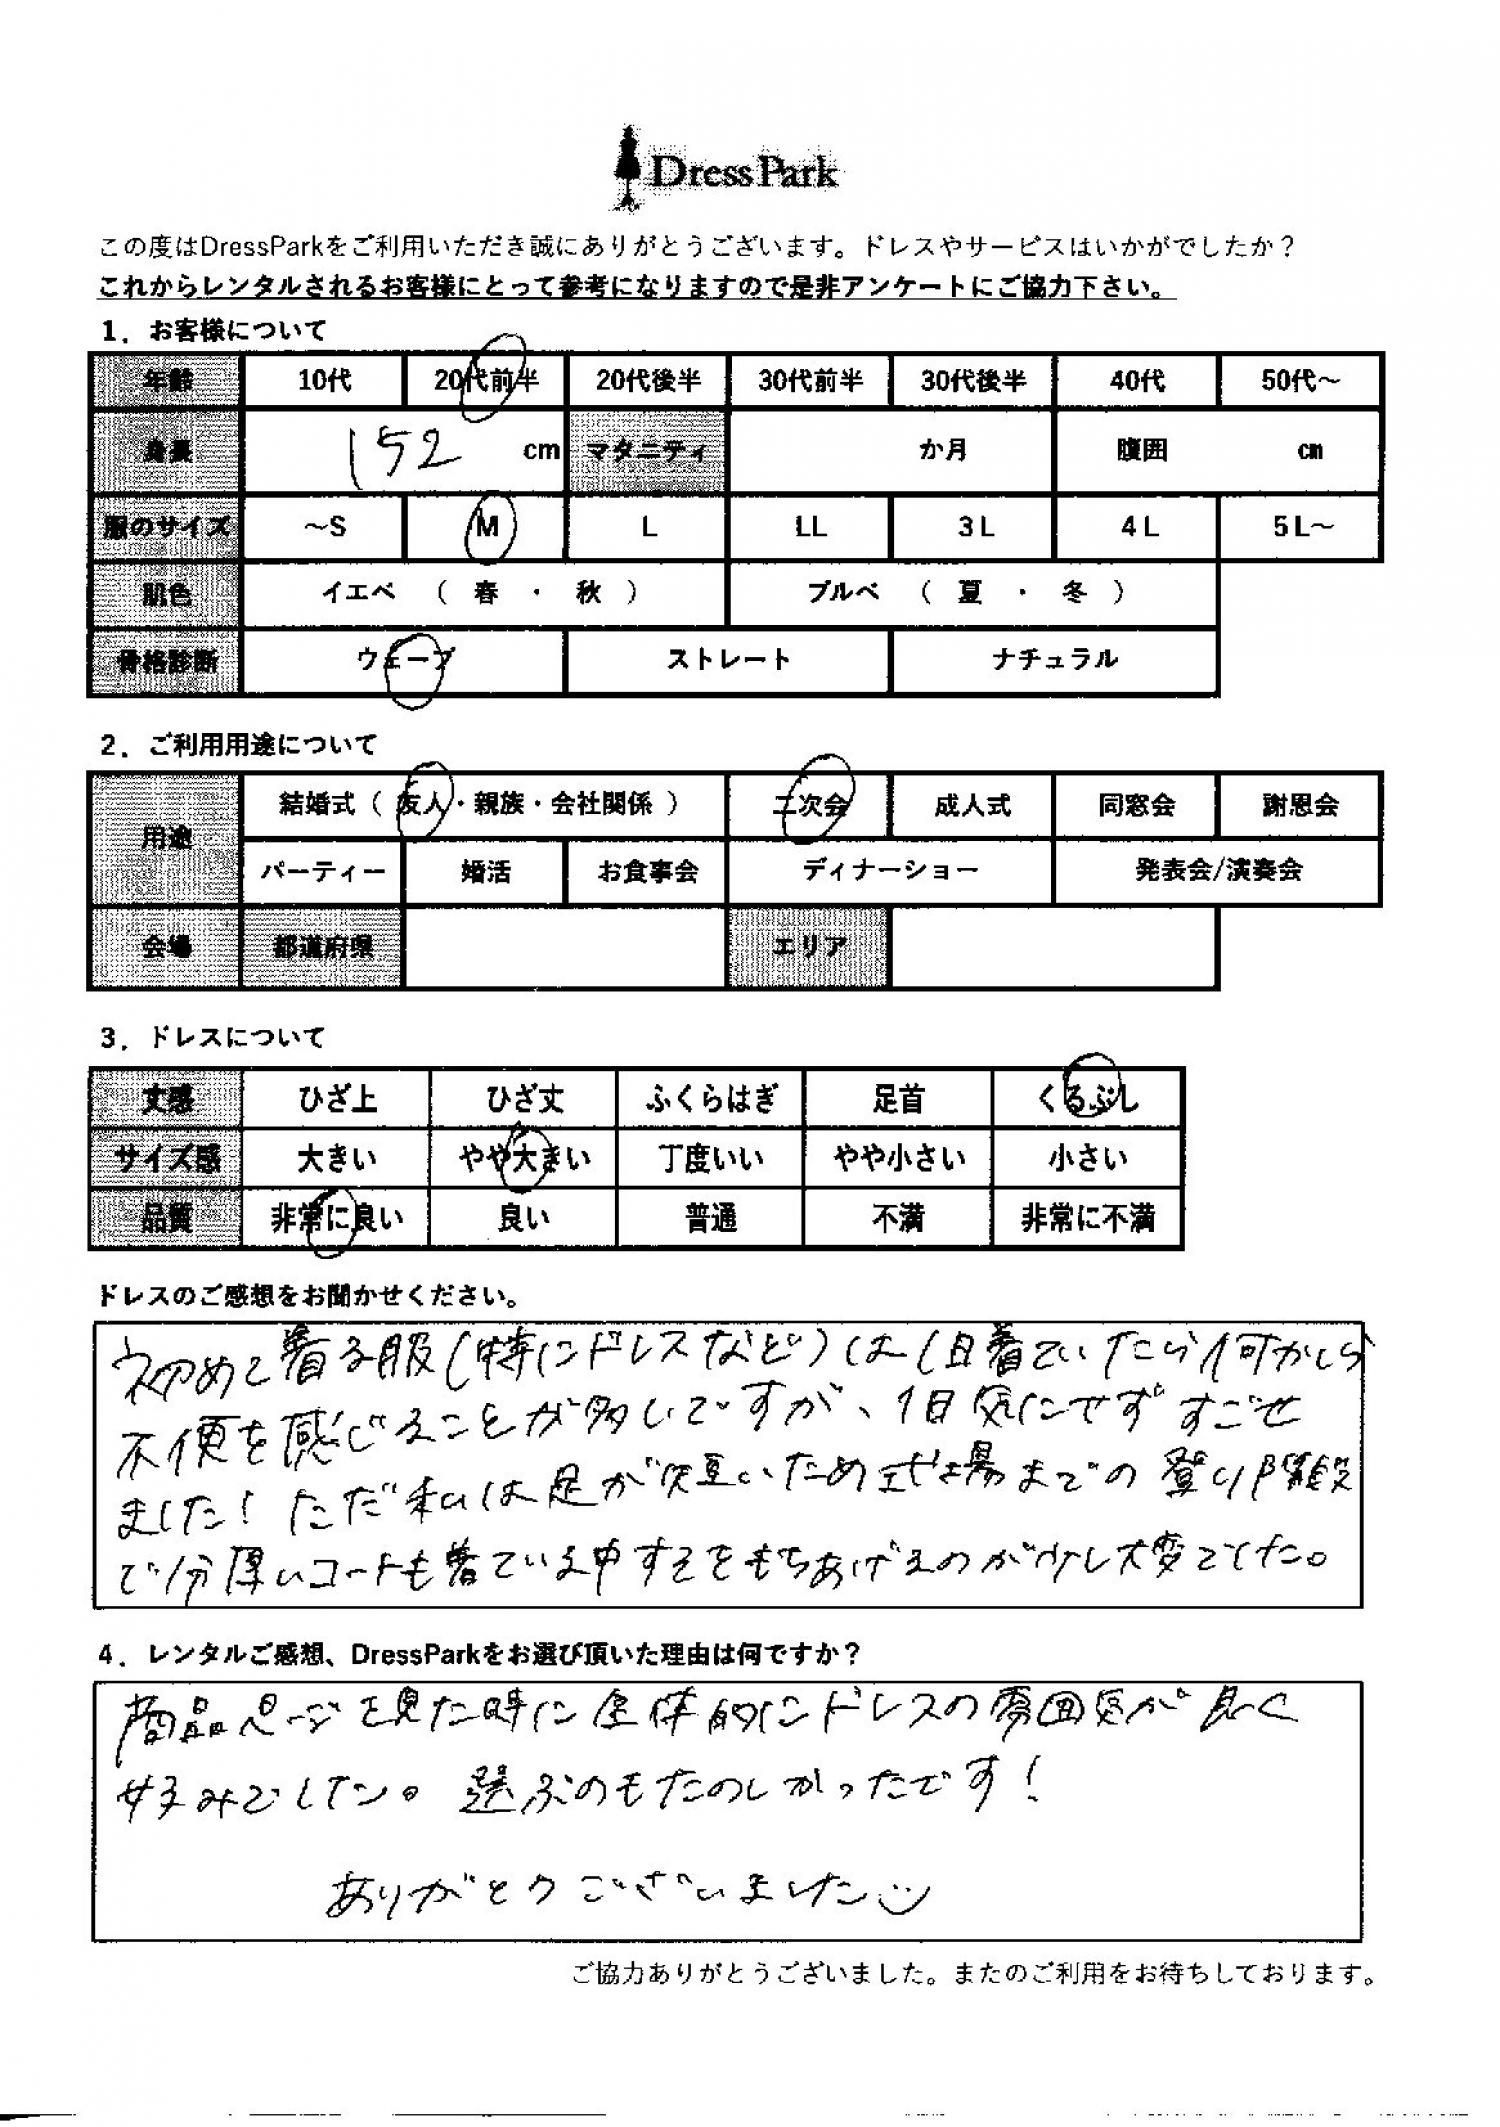 DressPark
この度はDressParkをご利用いただき誠にありがとうございます。ドレスやサービスはいかがでしたか？
これからレンタルされるお客様にとって参考になりますので是非アンケートにご協力下さい。
1．お客様について
年齢 10代 20代前半 20代後半 30代前半 30代後半 40代 50代～
身長 152 cm マタニティ か月 腹囲 ㎝
服のサイズ ～S M L LL 3L 4L 5L～
肌色 イエベ （ 春 ・ 秋 ） ブルベ （ 夏 ・ 冬 ）
骨格診断 ウェーブ ストレート ナチュラル
2．ご利用用途について
用途 結婚式（ 友人・親族・会社関係 ） 二次会 成人式 同窓会 謝恩会
パーティー 婚活 お食事会 ディナーショー 発表会/演奏会
会場 都道府県 エリア
3．ドレスについて
丈感 ひざ上 ひざ丈 ふくらはぎ 足首 くるぶし
サイズ感 大きい やや大きい 丁度いい やや小さい 小さい
品質 非常に良い 良い 普通 不満 非常に不満
ドレスのご感想をお聞かせください。
初めて着る服(特にドレスなど)は1日着ていたら何かしら
不便を感じることが多いですが、1日気にせずすごせ
ました! ただ私は足が短いため式場までの登り階段
で分厚いコートも着ている中すそをもちあげるのが少し大変でした。
4．レンタルご感想、DressParkをお選び頂いた理由は何ですか？
商品ページを見た時に全体的にドレスの雰囲気が良く
好みでした。選ぶのもたのしかったです!
ありがとうございました
ご協力ありがとうございました。またのご利用をお待ちしております。